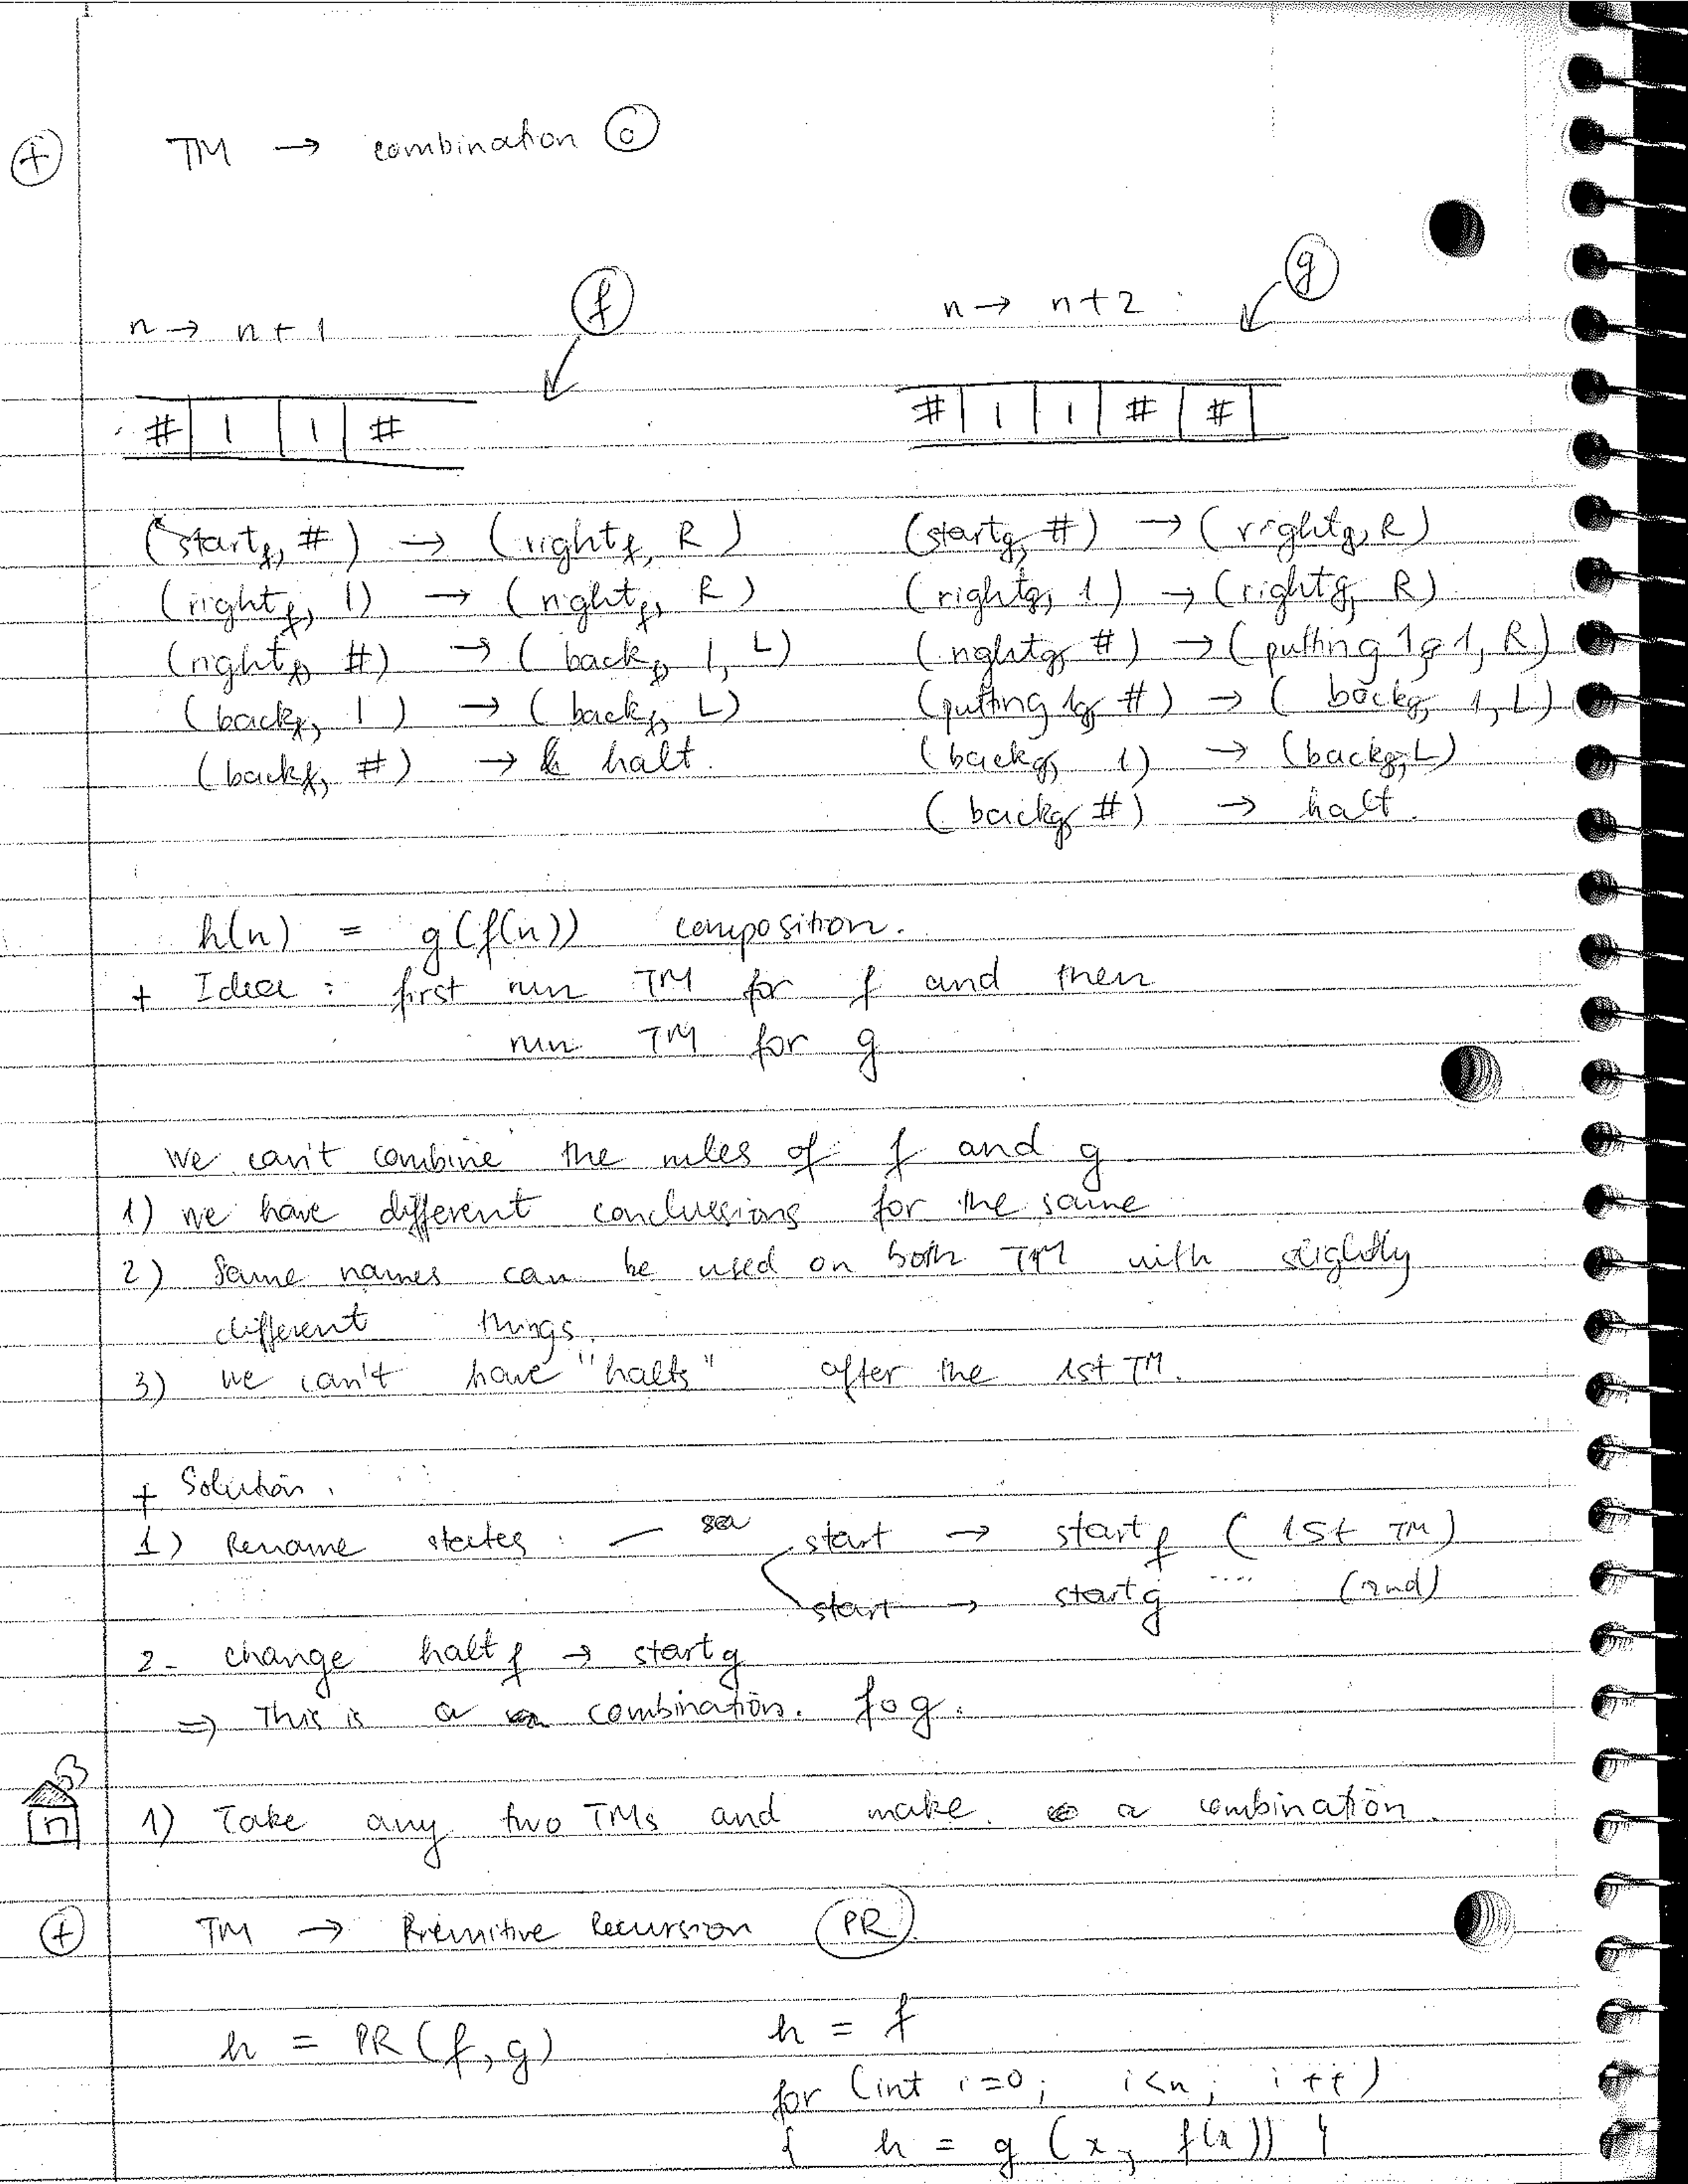 + TM → combination o
f
g
n → n + 1
n → n + 2 :
# | 1 | 1 | #
# | 1 | 1 | # | # |
(start_f, #) → (right_f, R)
(right_f, 1) → (right_f, R)
(right_f, #) → (back_f, 1, L)
(back_f, 1) → (back_f, L)
(back_f, #) → halt.
(start_g, #) → (right_g, R)
(right_g, 1) → (right_g, R)
(right_g, #) → (putting 1_g 1, R)
(putting 1_g #) → (back_g, 1, L)
(back_g, 1) → (back_g, L)
(back_g #) → halt.
h(n) = g(f(n)) composition.
+ Idea : first run TM for f and then
run TM for g
We can't combine the rules of f and g
1) we have different conclussions for the same
2) Same names can be used on both TM with slightly
different things.
3) we can't have "halts" after the 1st TM.
+ Solution.
1) Rename states : — start → start_f (1st TM)
start → start_g .... (2nd)
2- change halt_f → start_g
⇒ This is a combination. f o g.
n 1) Take any two TMs and make a combination.
+ TM → Premitive Recursion PR
h = PR(f, g)
h = f
for (int i=0; i<n; i++)
{ h = g (x, f(x)) }